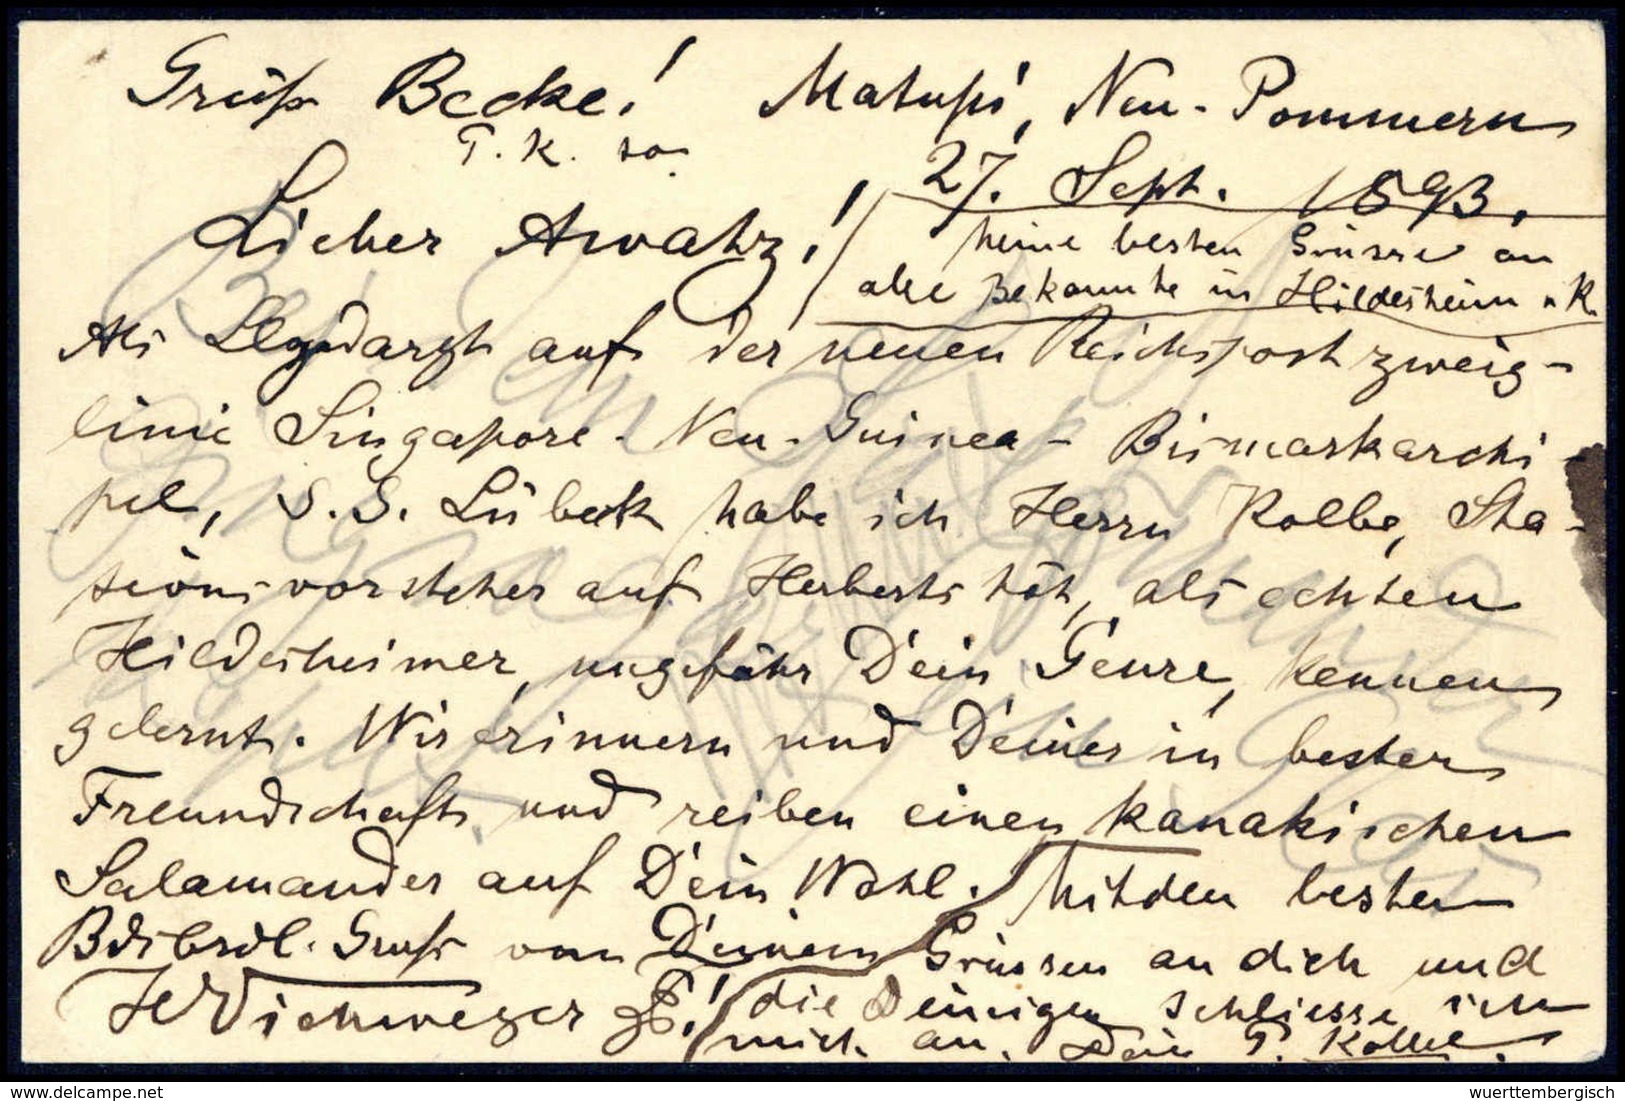 Gruß Becke! Matupi, Neu-Pommern
T. K. so.
27. Sept. 1893.
Lieber Awahz!
Meine besten Grüsse an
alle Bekannte in Hildesheim
Als Lloydarzt auf der neuen Reichspostzweig-
linie Singapore-Neu-Guinea-Bismarkarchi-
pel, S. S. Lübeck habe ich Herrn Kolbe, Sta-
tionsvorsteher auf Herbertshöh, als echten
Hildesheimer, ungefähr Dein Genre, kennen
gelernt. Wir erinnern und Deiner in bester
Freundschaft und reiben einen kanakischen
Salamander auf Dein Wohl.
Gruß von Deinem
HWichweger
Mit den besten
Grüssen an dich und
die Deinigen schliesse ich
mich an. Dein T. Kolbe.
Delcampe.net
wuerttembergisch